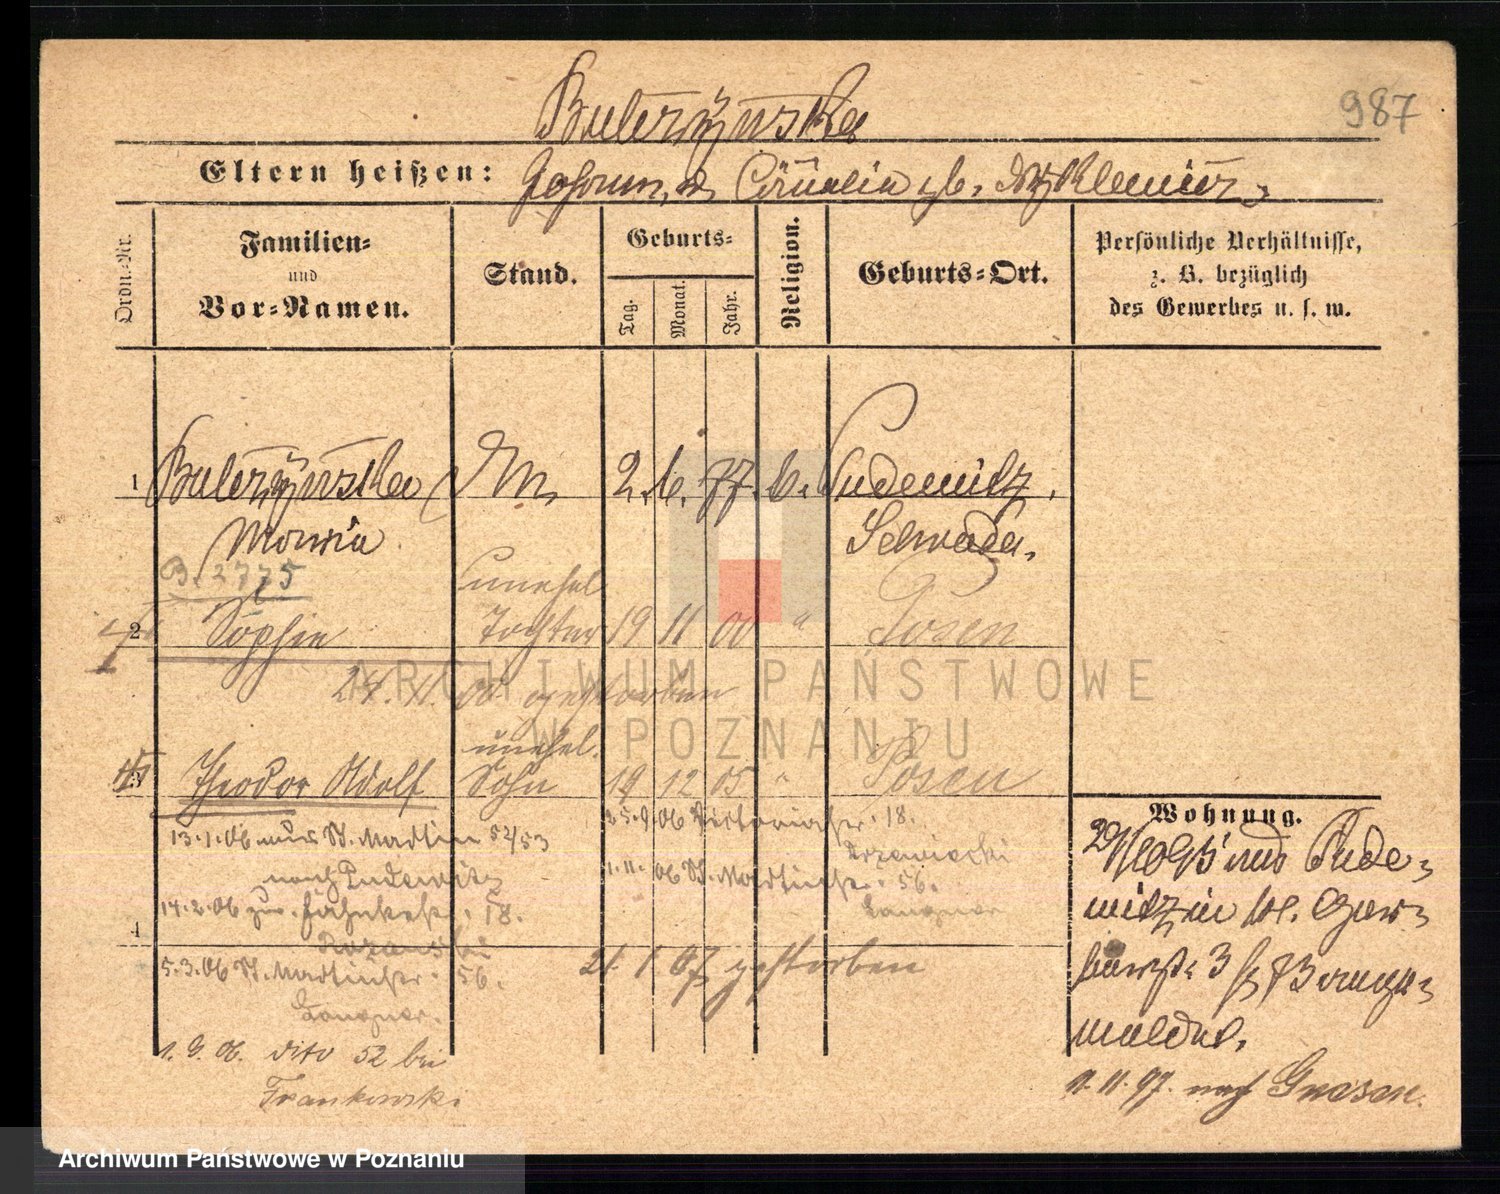 Buterzynska
987
Eltern heißen:
Johann,
Ordn.-Nr.
Familien-
und
Vor-Namen.
Stand.
Geburts-
Tag.
Monat.
Jahr.
Religion.
Geburts-Ort.
Persönliche Verhältnisse,
z. B. bezüglich
des Gewerbes u. s. w.
1 Buterzynska 2. 6. 77. Pudewitz,
Maria
Schroda,
B. 2775
unehel
2 Sophie Tochter 19 11 00 " Posen
24. 11. 00 gestorben
unehel.
3 Theodor Adolf Sohn 19 12 05 " Posen
13.1.06 St. Martin 52/53
nach Pudewitz
14.2.06 18.
5.3.06 St. Martinstr. 56.
Langner.
1. 9. 06. dito 52 bei
Frankowski
25.9.06 Victoriastr. 18.
1.11.06 St. Martinstr. 56.
Langner
4
21. 1 07 gestorben
Wohnung.
Pude-
witz in
3
meldet.
1. 11. 97. nach Gnesen.
ARCHIWUM PAŃSTWOWE
W POZNANIU
Archiwum Państwowe w Poznaniu